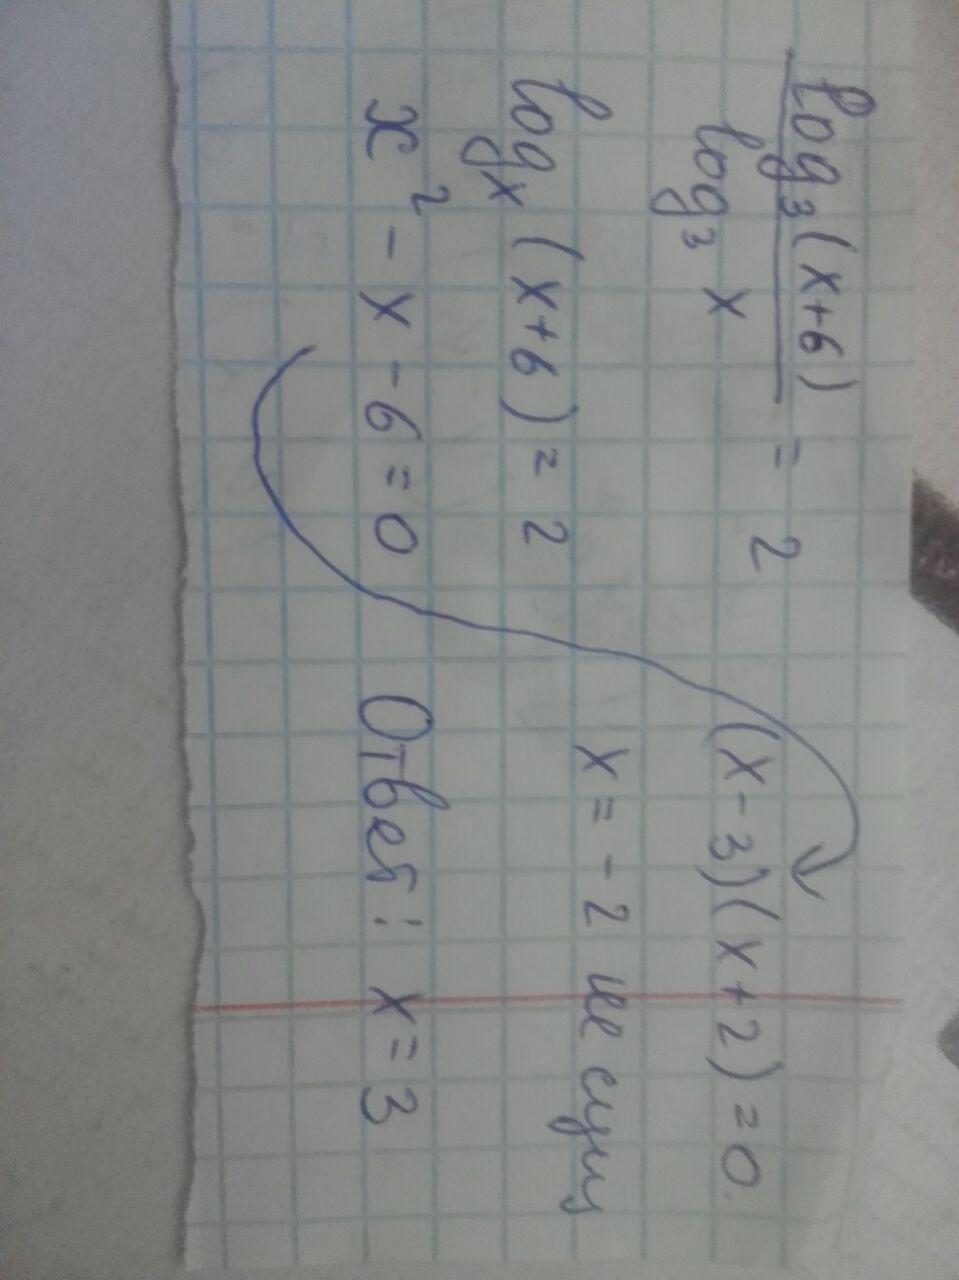 log₃(x+6)
log₃ x
= 2
logₓ (x+6) = 2
x² - x - 6 = 0
(x-3)(x+2) = 0
x = -2 не сущ
Ответ: x = 3